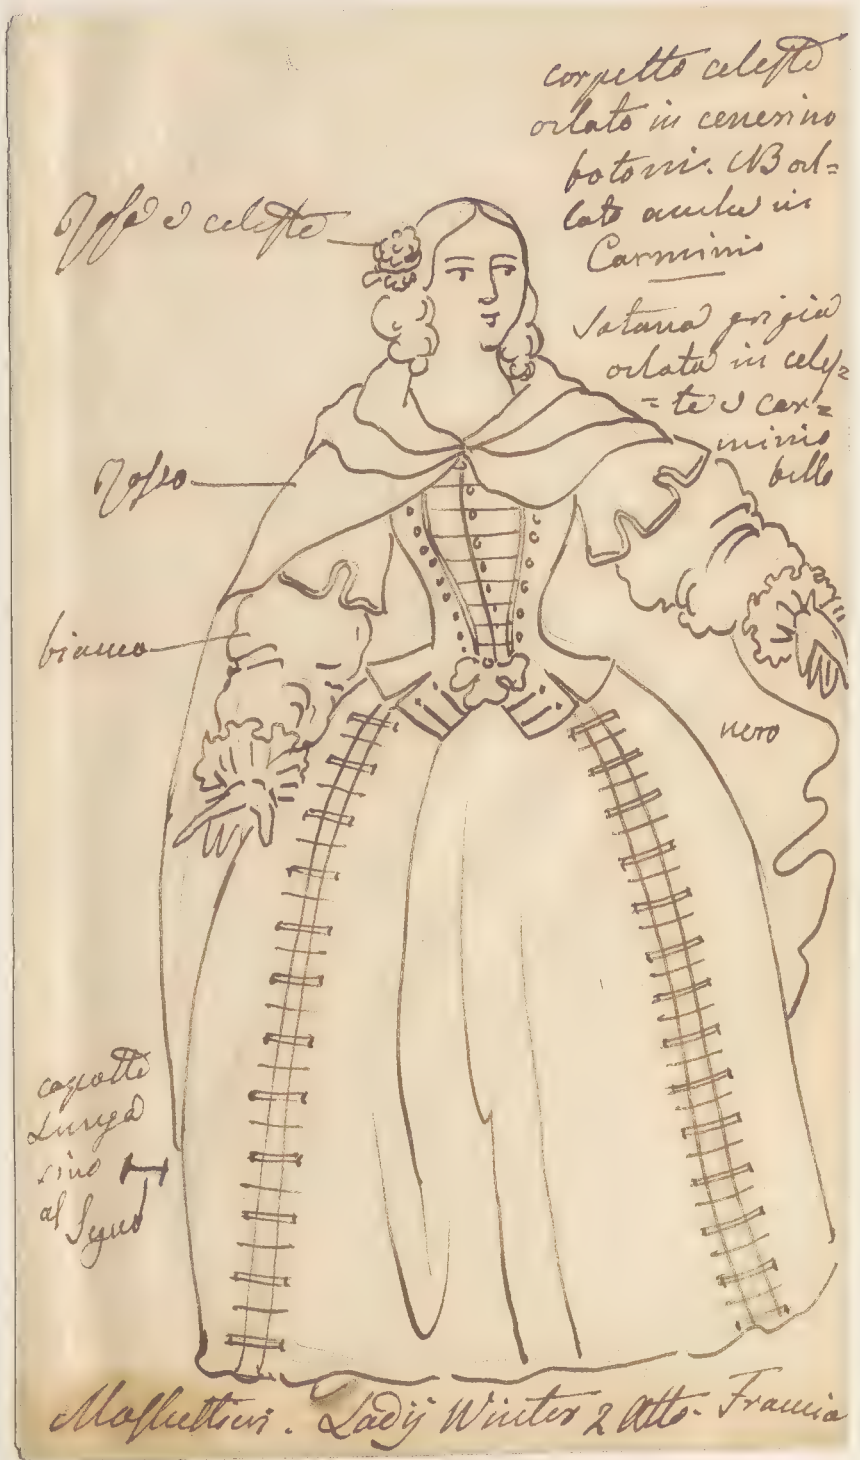 corpetto celeste
orlato in cenerino
botoni. NB orl=
lato anche in
Carminio
Rosa e celeste
Sotana grigia
orlata in celes=
=te e car=
minio
bello
Rosso
bianco
nero
capotto
Lungo
sino
al Segno
Moschettieri. Ladij Winter 2 Atto. Francia